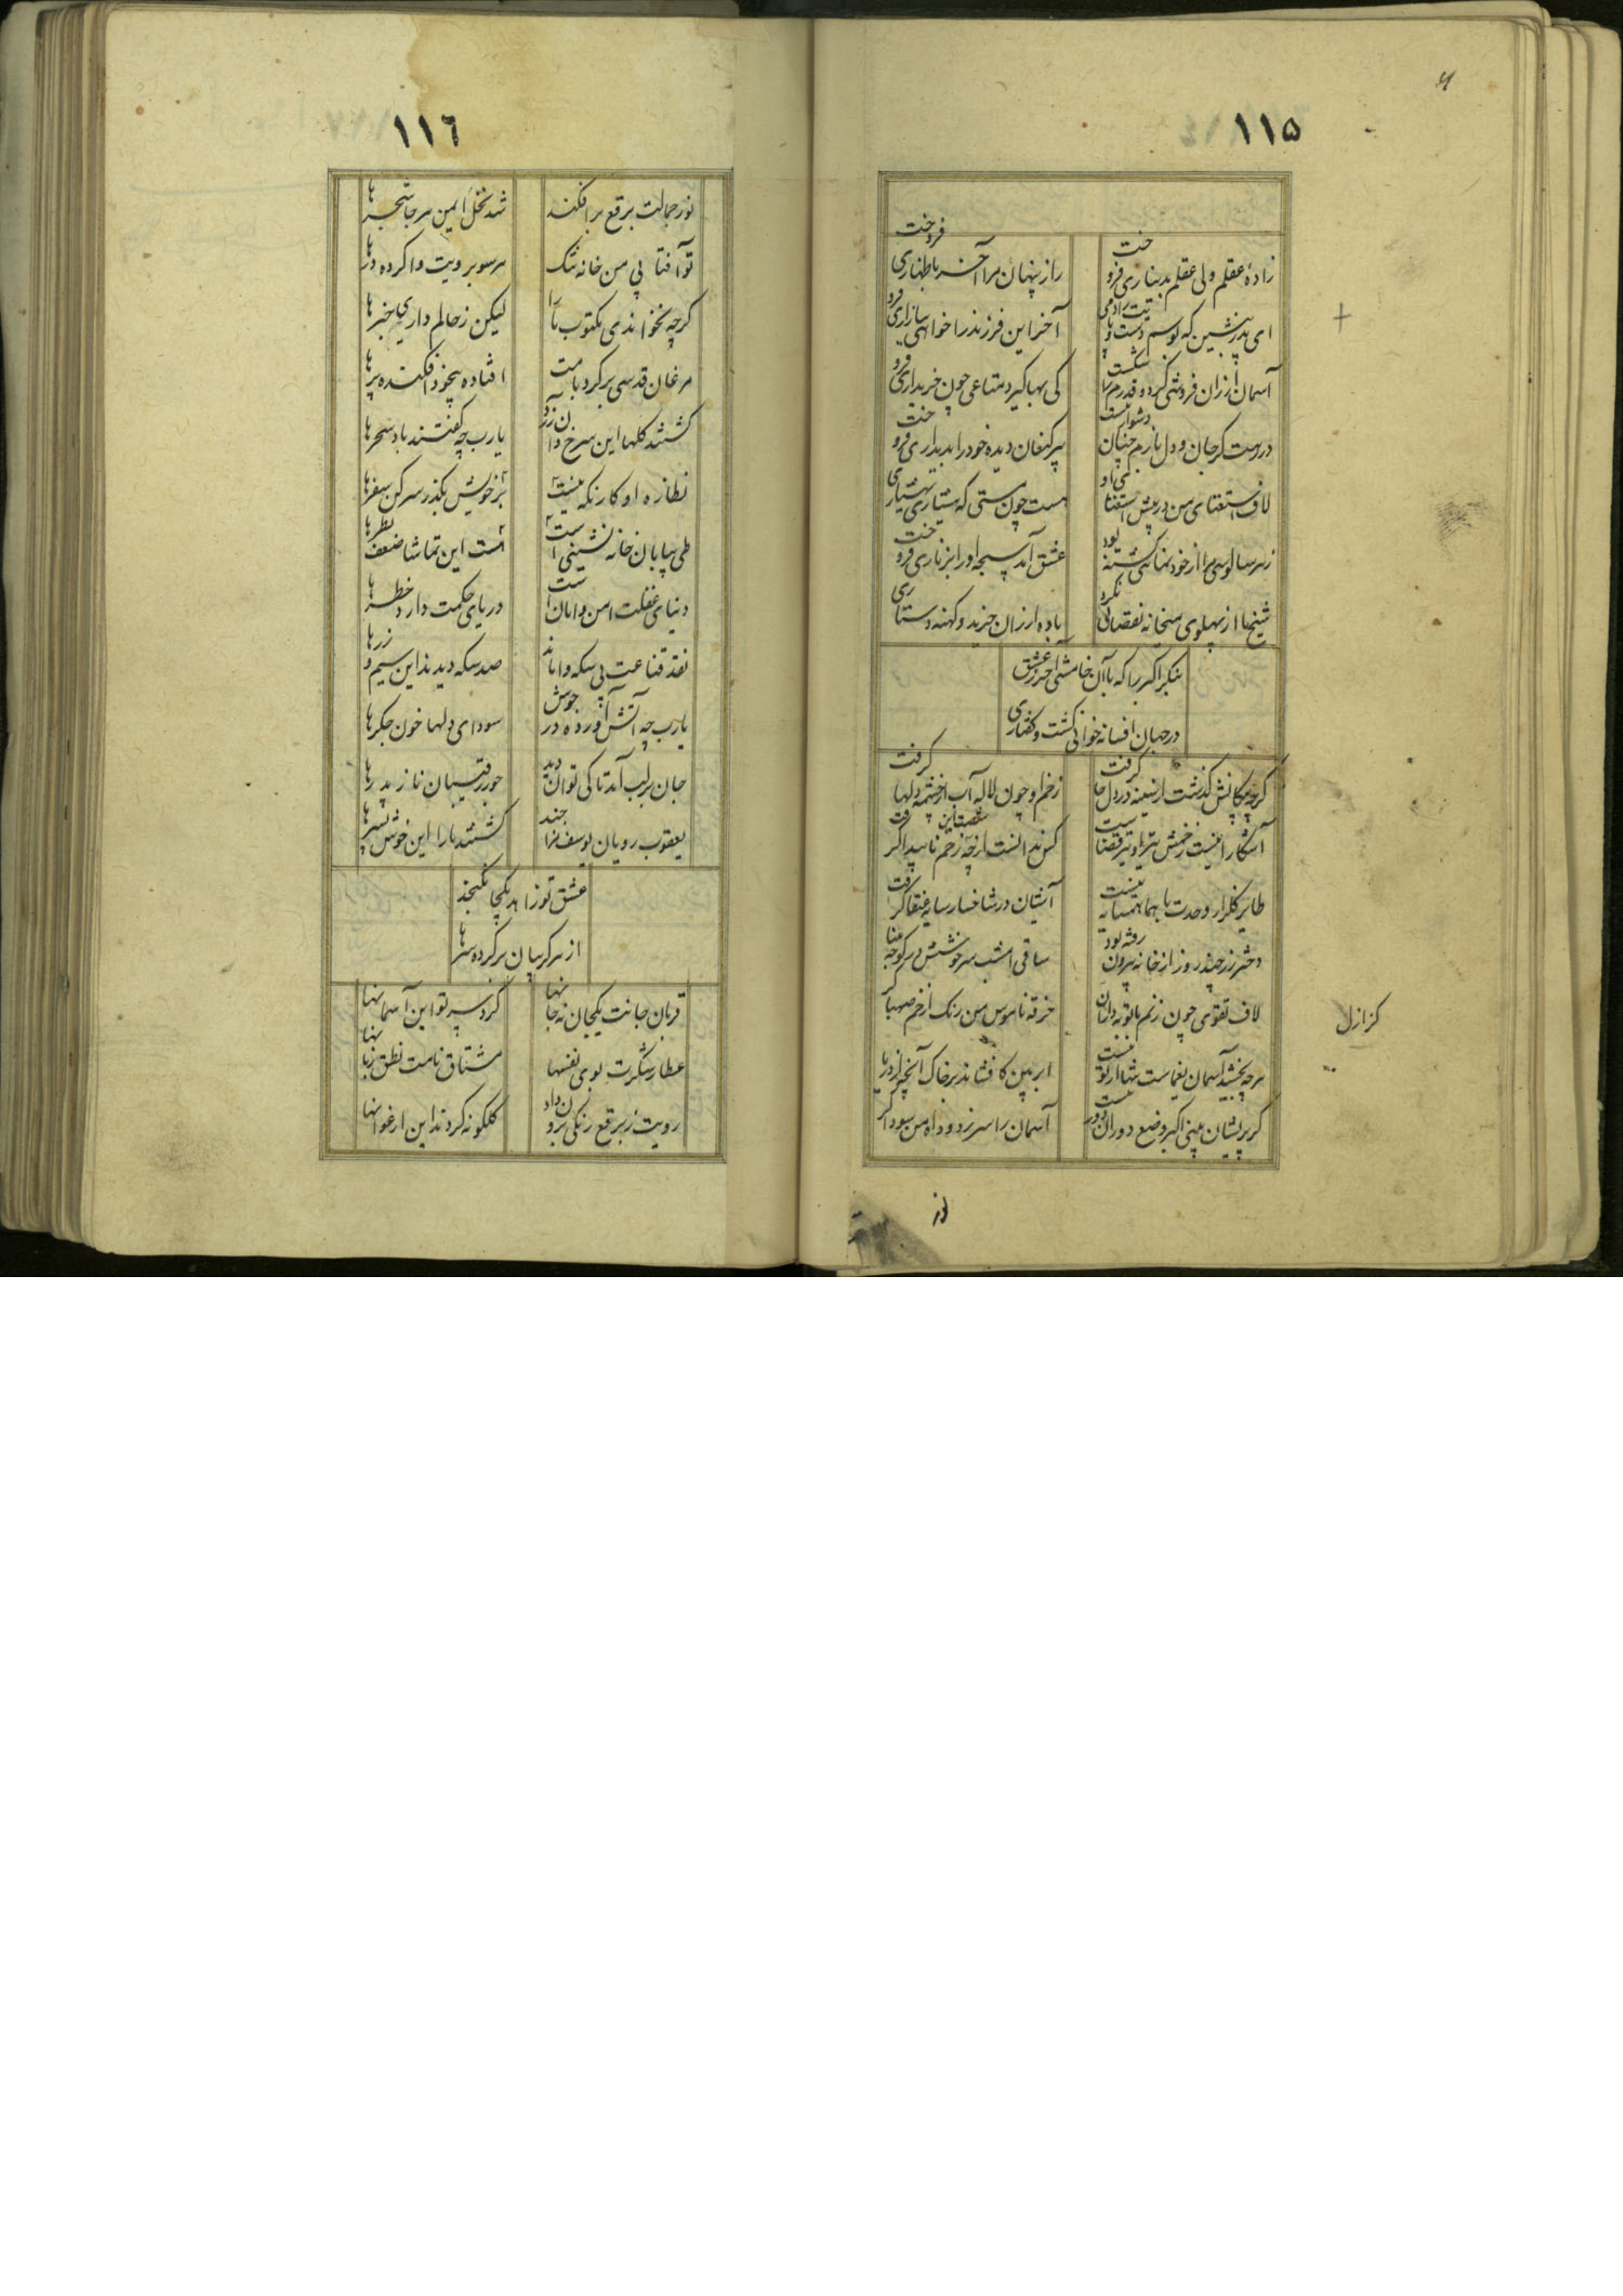 ١١۵
زادهٔ عقلم ولی عقلم بدیناری فروخت
راز پنهان مرا آخر باظهاری فروخت
ای پدر بنشین که بوسم دست و پایت
آخر این فرزند را خواهی ببازاری فرو
آسمان ارزان فروشی کرد و قدرم را شکست
کی بها گیرد متاعی چون خریداری فرو
درست کر جان و دل بازم چنان دشوار نیست
پیر کنعان دیده خود را بدیداری فروخت
لاف استغنای من در پیش استغنای او
هست چون مستی که هشیاری
زهر سالوسی مرا از خود نمائی کشته بود
عشق آمد سبحه او را بزناری فروخت
شیخ ما از پهلوی میخانه نقصانی نکرد
باده ارزان خرید و کهنه دستاری
بنگر اکبر را که با آن خامشی آخر ز عشق
در جهان افسانه خوانی گشت و گفتاری
کرچه پیکانش گذشت از سینه در دل جا گرفت
زخم او چون لاله آب از چشمه دلها گرفت
آشکارا نیست زخمش تیر او تیر قضاست
کس ندانست از چه زخم ناپیدا گرفت
طایر گلزار وحدت با هما همسایه نیست
آشیان در شاخسار سایه عنقا گرفت
دختر رز چند روز از خانه بیرون رفته بود
ساقی امشب سرخوشش در کوچه مینا
لاف تقوی چون زنم با توبه داران
خرقه ناموس من رنگ از خم صهبا گر
هرچه بخشید آسمان یغماست تنها از تو نیست
ابر بین کافشاند بر خاک آنچه از دریا
گر پریشان بینی اکبر وضع دوران دور نیست
آسمان را سر زد و دود آه من سودا گر
کزازل
از
١١٦
نور جمالت برقع برافکند
شد نخل ایمن هر جا شجرها
تو آفتابی من خانه تنگ
هر سو برویت وا کرده درها
گرچه نخواندی مکتوب ما را
لیکن ز حالم داری خبرها
مرغان قدسی بر گرد بامت
افتاده بیخود افکنده پرها
گشتند گلها این سرخ و آن زرد
یارب چه گفتند باد سحرها
نظاره او کار نگه نیست
بر خویش بگذر سر کن سفرها
طی بیابان خانه نشینی است
است این تماشا ضعف نظرها
دنیای غفلت امن و امان است
دریای حکمت دارد خطرها
نقد قناعت بی سکه واماند
صد سکه دیدند این سیم و زرها
یارب چه آتش آورده در جوش
سودای دلها خون جگرها
جان بر لب آمد تا کی توان دید
جور رقیبان ناز پدرها
یعقوب رویان یوسف نزا چند
کشتند ما را این خوش پسرها
عشق تو زاهد یکجا نگنجد
از هر گریبان بر کرده سرها
قربان جانت یکجان نه جانها
گرد سر تو این آسمانها
عطار شکرت بوی نفسها
مشتاق نامت نطق زبانها
رویت ز برقع رنگی برون داد
گلگونه کردند این ارغوانها